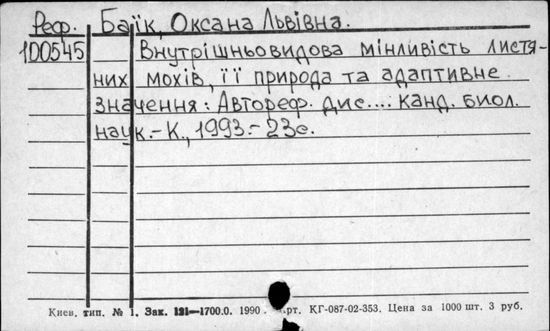 Реф. Баїк, Оксана Львівна.
100545 Внутрішньовидова мінливість листя-
них мохів, її природа та адаптивне
значення: Автореф. дис.... канд. биол.
наук.-К., 1993.-23с.
Киев. тип. № 1. Зак. 121—1700.0. 1990 КГ-087-02-353. Цена за 1000 шт. 3 руб.